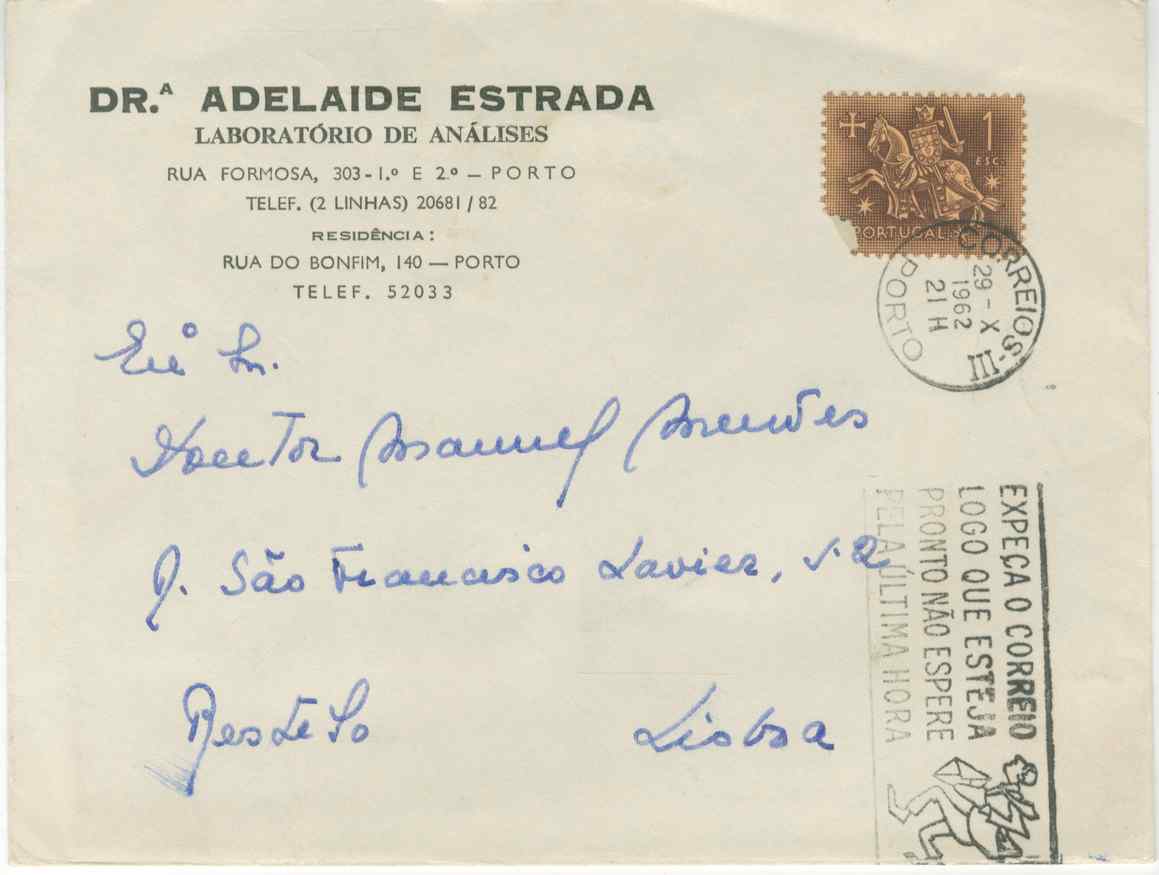 DR.ª ADELAIDE ESTRADA
LABORATÓRIO DE ANÁLISES
RUA FORMOSA, 303-1.º E 2.º — PORTO
TELEF. (2 LINHAS) 20681/82
RESIDÊNCIA:
RUA DO BONFIM, 140 — PORTO
TELEF. 52033
1
ESC.
PORTUGAL
CORREIOS-III
29-X
1962
21 H
PORTO
Exmº Sr.
Doutor Manuel Mendes
R. São Francisco Xavier,
Restelo Lisboa
EXPEÇA O CORREIO
LOGO QUE ESTEJA
PRONTO NÃO ESPERE
PELA ÚLTIMA HORA